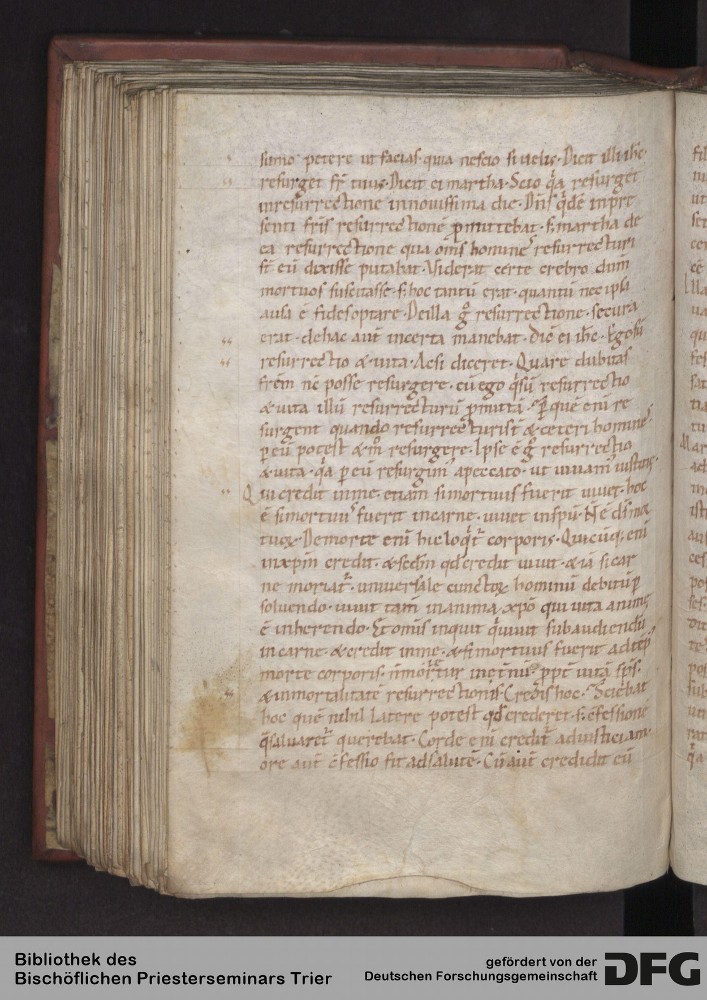 sumo petere ut facias· quia nescio si uelis· Dicit illi ihc·
resurget fr̄ tuus· Dicit ei martha· Scio q̇a resurget
inresurrectione innouissima die· Dn̄s q̇dē inp̄re
senti fr̄is resurrectionē p̄mittebat· s; martha de
ea resurrectione qua om̄s hominēs resurrecturi
st̄ eū dixisse putabat· Viderat certe crebro dnm̄
mortuos suscitasse· s; hoc tantū erat· quantū nec ipsi
ausi ē fides optare· De illa g̊ resurrectione· secura
erat· dehac aut̄ incerta manebat· Dic̄ ei ihc· Ego sū
resurrectio & uita· Ac si diceret· Quare dubitas
frēm nc̄ posse resurgere· cū ego q̇ sū resurrectio
& uita illū resurrecturū p̄mittā· P̱ quē enī re
surgent quando resurrecturi st̄ & ceteri hominēs
p̱ eū potest & m̊ resurgere· Ipse ē g̊ resurrectio
& uita· q̇a p̱ eū resurgim̄ apeccato· ut uiuam̄ iustitię·
Qui credit inme· etiam si mortuus fuerit uiuet· hoc
ē si mortuus fuerit incarne· uiuet in sp̄u· N̄ ē ds̄ mor
tuoꝝ· De morte enī hic loq̇t̄ corporis· Quicūq; enī
inxpm̄ credit· & secdm̄ qd̄ credit uiuit· & iā si car
ne moriat̄· uniuersale cunctoꝝ hominū debitū p̱
soluendo· uiuit tam̄ in anima xpō qui uita animę
ē inherendo· Et omis inquit q̇ uiuit subaudiendū
in carne· & credit inme· & si mortuus fuerit ad tēp̄
morte corporis· n̄ moriet̄ur inet̄nū· p̱pt̄ uitā sp̄s·
& inmortalitatē resurrectionis· Credis hoc· Sciebat
hoc quē nihil latere potest qd̄ crederet· s; c̄fessionē
q̇ saluaret̄ querebat· Corde enī credit̄ adiusticiam·
ore aut̄ c̄fessio fit ad salutē· Cū aut̄ credidit eū
Bibliothek des
Bischöflichen Priesterseminars Trier
gefördert von der
Deutschen Forschungsgemeinschaft
DFG